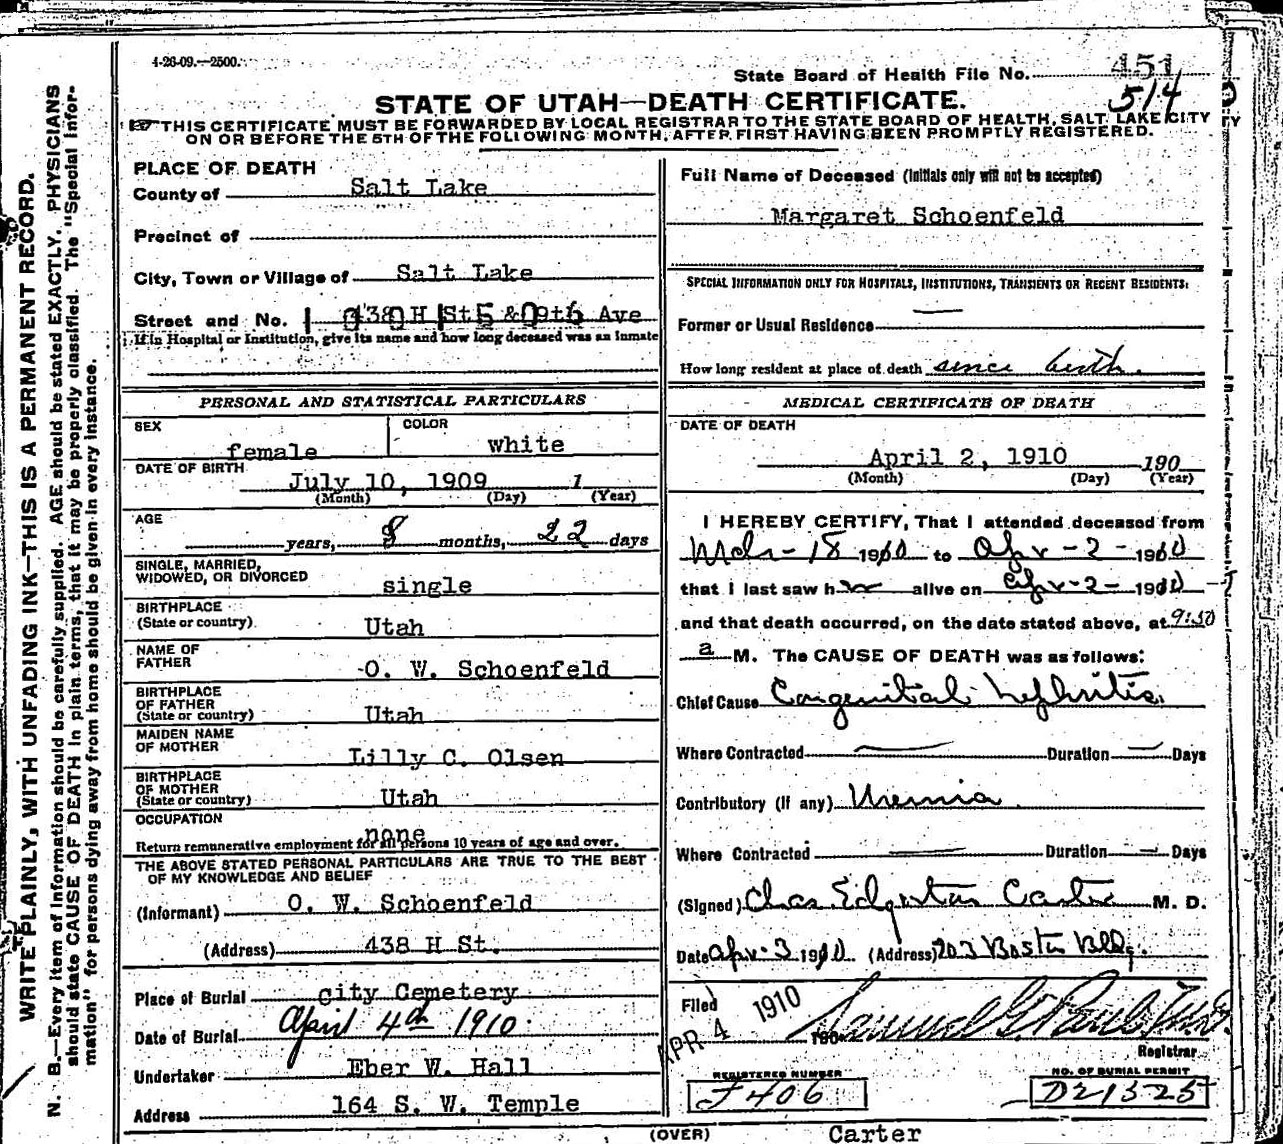 4-26-09.—2500.
State Board of Health File No. 451
514
STATE OF UTAH—DEATH CERTIFICATE.
THIS CERTIFICATE MUST BE FORWARDED BY LOCAL REGISTRAR TO THE STATE BOARD OF HEALTH, SALT LAKE CITY
ON OR BEFORE THE 5TH OF THE FOLLOWING MONTH, AFTER FIRST HAVING BEEN PROMPTLY REGISTERED.
WRITE PLAINLY, WITH UNFADING INK—THIS IS A PERMANENT RECORD.
N. B.—Every item of Information should be carefully supplied. AGE should be stated EXACTLY. PHYSICIANS
should state CAUSE OF DEATH in plain terms, that it may be properly classified. The "Special Infor-
mation" for persons dying away from home should be given in every instance.
PLACE OF DEATH
County of Salt Lake
Precinct of
City, Town or Village of Salt Lake
Street and No. 438 H St & 9th Ave
If in Hospital or Institution, give its name and how long deceased was an inmate
PERSONAL AND STATISTICAL PARTICULARS
SEX female COLOR white
DATE OF BIRTH
July 10, 1909 1
(Month) (Day) (Year)
AGE
years, 8 months, 22 days
SINGLE, MARRIED,
WIDOWED, OR DIVORCED single
BIRTHPLACE
(State or country) Utah
NAME OF
FATHER O. W. Schoenfeld
BIRTHPLACE
OF FATHER
(State or country) Utah
MAIDEN NAME
OF MOTHER Lilly C. Olsen
BIRTHPLACE
OF MOTHER
(State or country) Utah
OCCUPATION
none
Return remunerative employment for all persons 10 years of age and over.
THE ABOVE STATED PERSONAL PARTICULARS ARE TRUE TO THE BEST
OF MY KNOWLEDGE AND BELIEF
(Informant) O. W. Schoenfeld
(Address) 438 H St.
Place of Burial City Cemetery
Date of Burial April 4th 1910.
Undertaker Eber W. Hall
Address 164 S. W. Temple
Full Name of Deceased (Initials only will not be accepted)
Margaret Schoenfeld
SPECIAL INFORMATION ONLY FOR HOSPITALS, INSTITUTIONS, TRANSIENTS OR RECENT RESIDENTS:
Former or Usual Residence —
How long resident at place of death since birth.
MEDICAL CERTIFICATE OF DEATH
DATE OF DEATH
April 2, 1910 190
(Month) (Day) (Year)
I HEREBY CERTIFY, That I attended deceased from
Mch-18 1910 to Apr-2-1910
that I last saw her alive on Apr-2-1910
and that death occurred, on the date stated above, at 9:50
a M. The CAUSE OF DEATH was as follows:
Chief Cause Congenital Nephritis
Where Contracted — Duration — Days
Contributory (If any) Uremia
Where Contracted — Duration — Days
(Signed) Chas Edgerton Carter M. D.
Date Apr-3 1910 (Address) 203 Boston Bldg.
Filed APR 4 1910 190
Samuel G Paul
Registrar
REGISTERED NUMBER
F406
NO. OF BURIAL PERMIT
D21525
(OVER) Carter